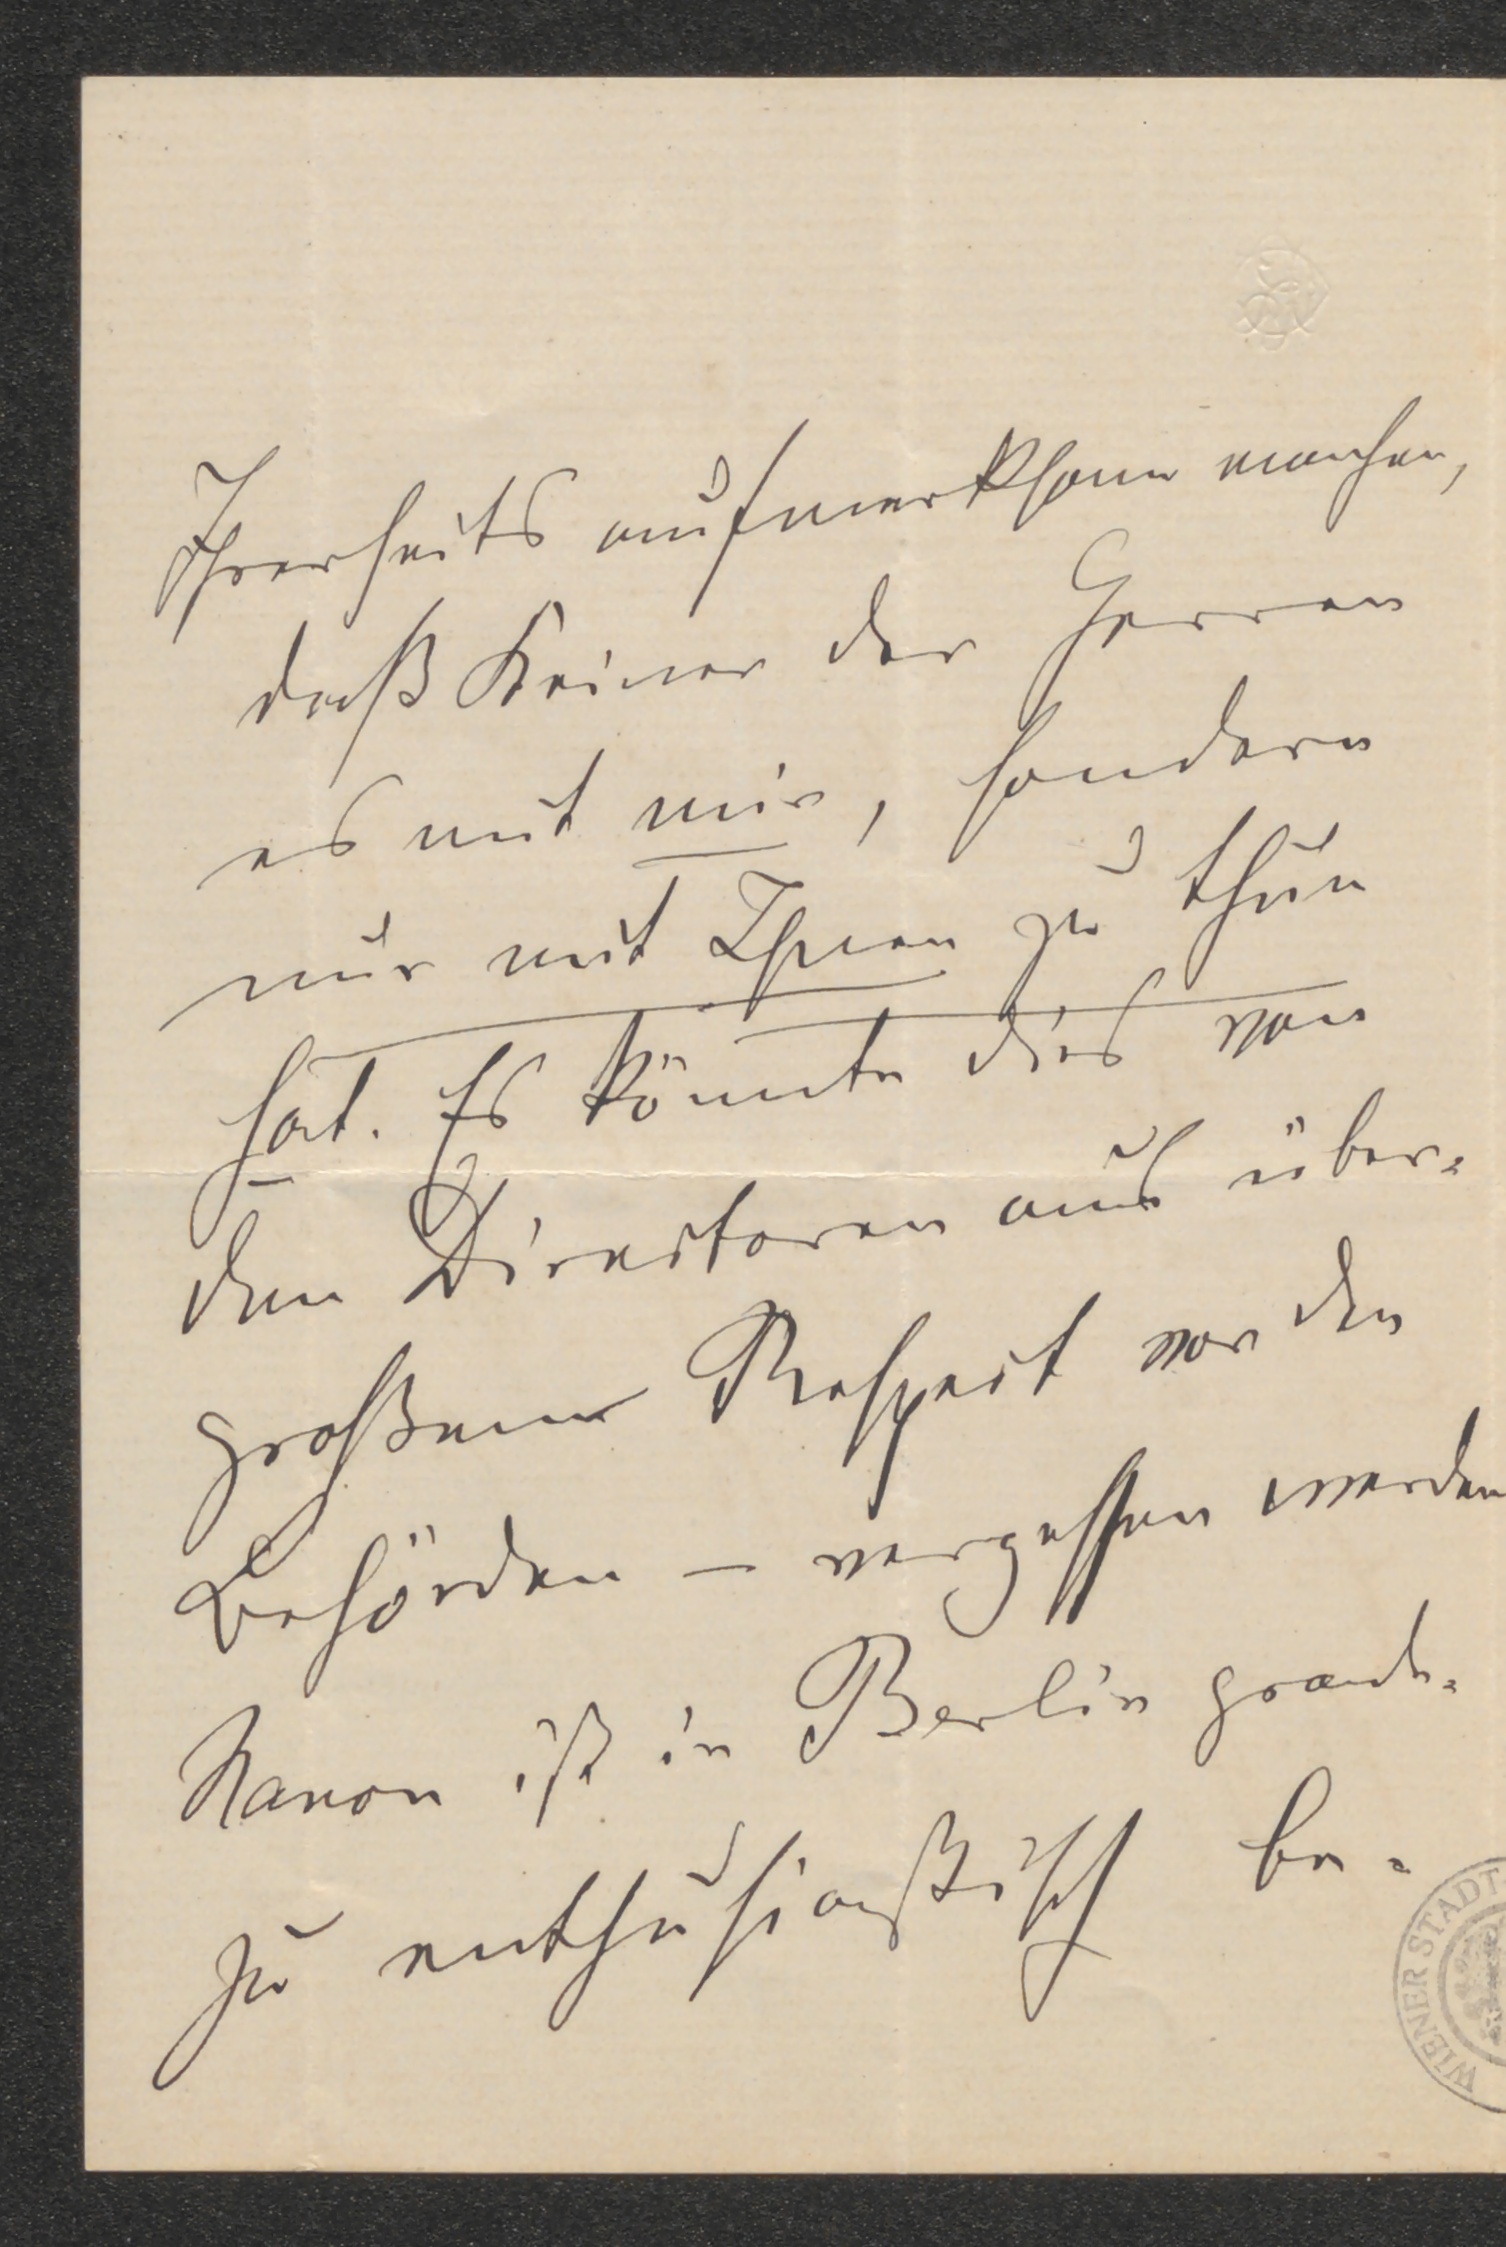 Ihrerseits aufmerksam machen,
daß Keiner der Herren
es mit mir, sondern
nur mit Ihnen zu thun
hat. Es könnte dies von
den Directoren aus über=
großem Respect vor den
Behörden – vergessen werden
Nanon ist in Berlin grade=
zu enthusiastisch be=
WIENER STADT